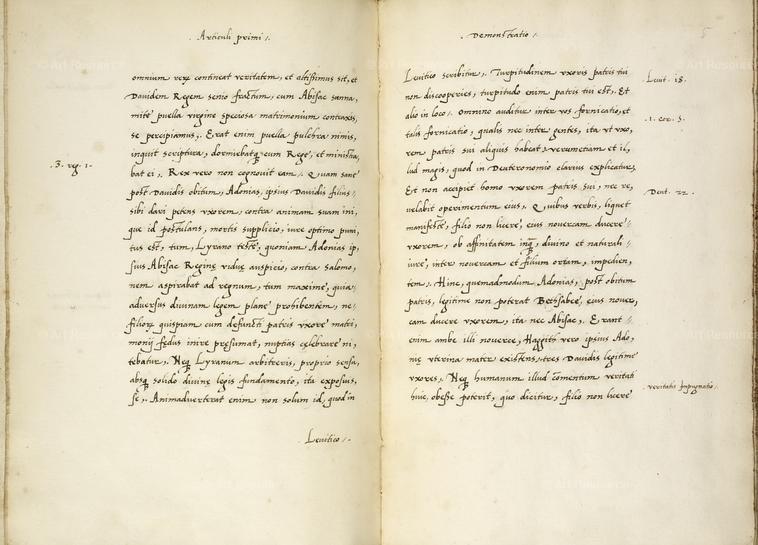 . Articuli primi /.
omnium rerū contineat veritatem, et altissimus sit, et
Dauidem Regem senio fractum, cum Abisac sanna,
mite puella virgine speciosa matrimonium contraxis,
se percipiamus,. Erat enim puella pulchra nimis,
inquit scriptura, dormiebatq̢ cum Rege, et ministra,
bat ei,. Rex vero non cognouit eam,. Quam sane
post Dauidis obitum, Adonias, ipsius Dauidis filius,
sibi dari petens vxorem, contra animam suam ini,
que id postulans, mortis supplicio, iure optimo puni,
tus est, tum, Lyrano teste, quoniam Adonias ip,
sius Abisac Regine vidue auspicio, contra Salomo,
nem aspirabat ad regnum, tum maxime, quia
aduersus diuinam legem plane prohibentem, ne,
filiorū quispiam cum defuncti patris vxore matri,
monij fędus inire pręsumat, nuptias celebrare ni,
tebatur,. Neq̢ Lyranum arbitreris, proprio sensu,
absq̢ solido diuinę legis fundamento, ita exposuis,
se,. Animaduerterat enim non solum id, quod in
. Leuitico /.
.3. reg. 1.
. Demonstratio /.
Leuitico scribitur,. Turpitudinem vxoris patris tui
non discooperies, turpitudo enim patris tui est,. Et
alio in loco,. Omnino auditur inter vos fornicatio, et
talis fornicatio, qualis nec inter gentes, ita vt vxo,
rem patris sui aliquis habeat, verumetiam et il,
lud magis, quod in Deuteronomio clarius explicatur,
Est non accipiet homo vxorem patris sui, nec re,
velabit operimentum eius,. Quibus verbis, liquet
manifeste, filio non licere, eius nouercam ducere
vxorem, ob affinitatem inq̢, diuino et naturali
iure, inter nouercam et filium ortam, impedien,
tem,. Hinc, quemadmodum Adonias, post obitum
patris, legitime non poterat Bethsabee, eius nouer,
cam ducere vxorem, ita nec Abisac,. Erant
enim ambe illi nouerce, Haggith vero ipsius Ado,
nię vterina mater existens, tres Dauidis legitime
vxores,. Neq̢ humanum illud comentum veritati
huic, obesse poterit, quo dicitur, filio non licere
. Leuit. 18.
.1. cor. 5.
Deut. 22.
. veritatis īpugnatio,.